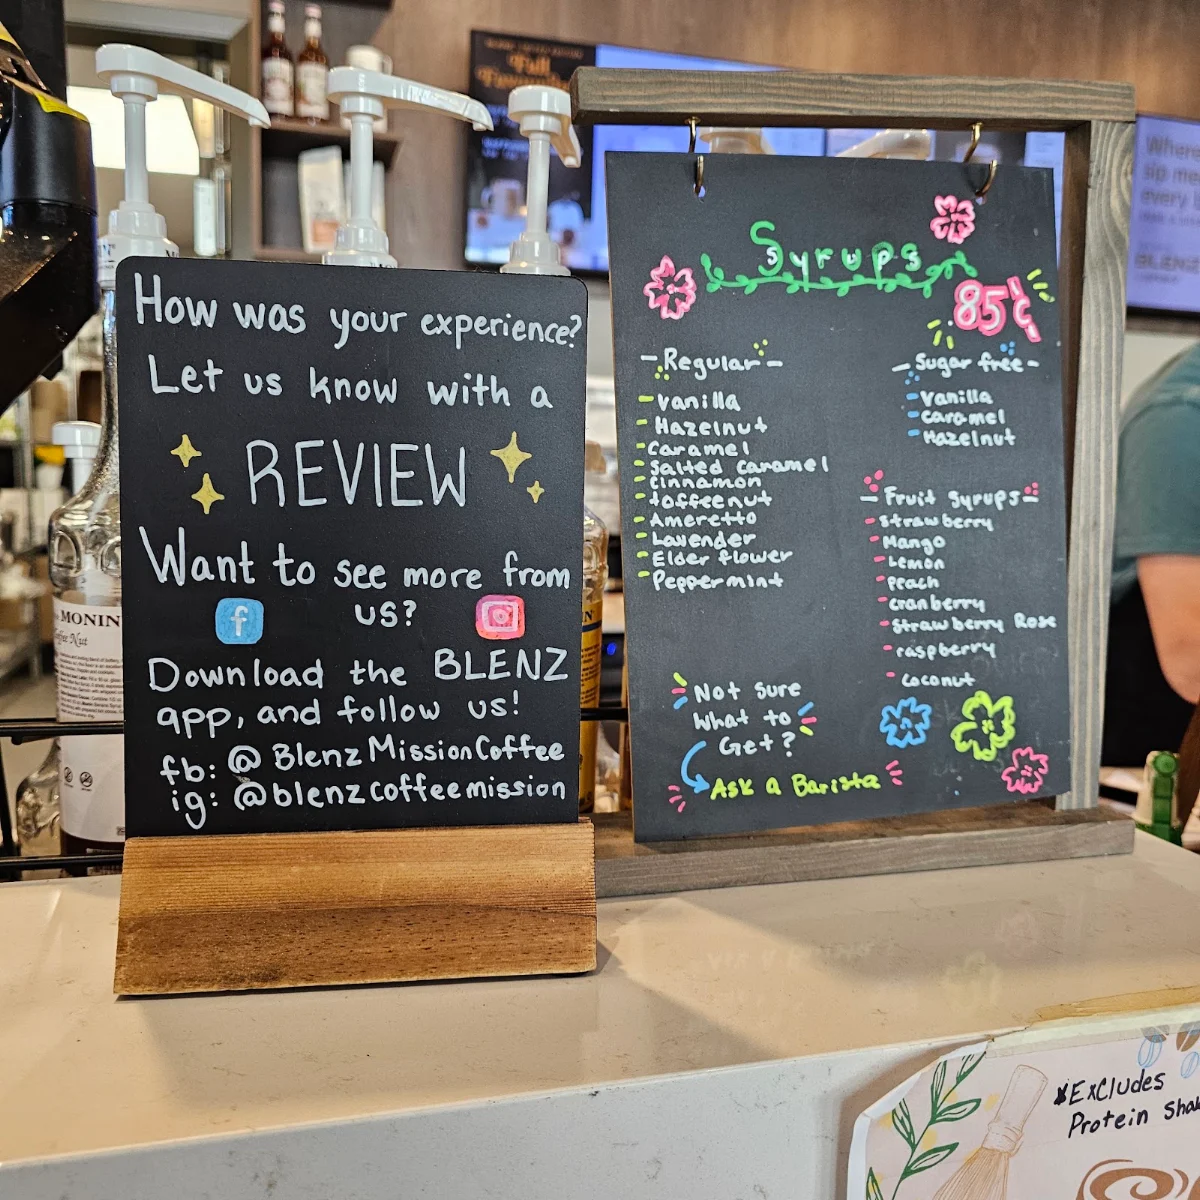 How was your experience?
Let us know with a
REVIEW
Want to see more from
us?
Download the BLENZ
app, and follow us!
fb: @BlenzMissionCoffee
ig: @blenzcoffeemission
Syrups
85¢
-Regular-
-vanilla
-Hazelnut
-Caramel
-Salted caramel
-Cinnamon
-toffeenut
-Ameretto
-Lavender
-Elder flower
-Peppermint
-Sugar free-
-vanilla
-caramel
-Hazelnut
-Fruit syrups-
-strawberry
-Mango
-Lemon
-Peach
-cranberry
-strawberry Rose
-raspberry
-coconut
Not sure
What to
Get?
Ask a Barista
MONIN
Where
sip me
every
BLENZ
*Excludes
Protein Sha